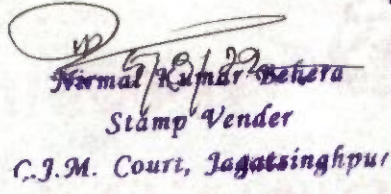 Nirmal Kumar Behera
Stamp Vender
C.J.M. Court, Jagatsinghpur